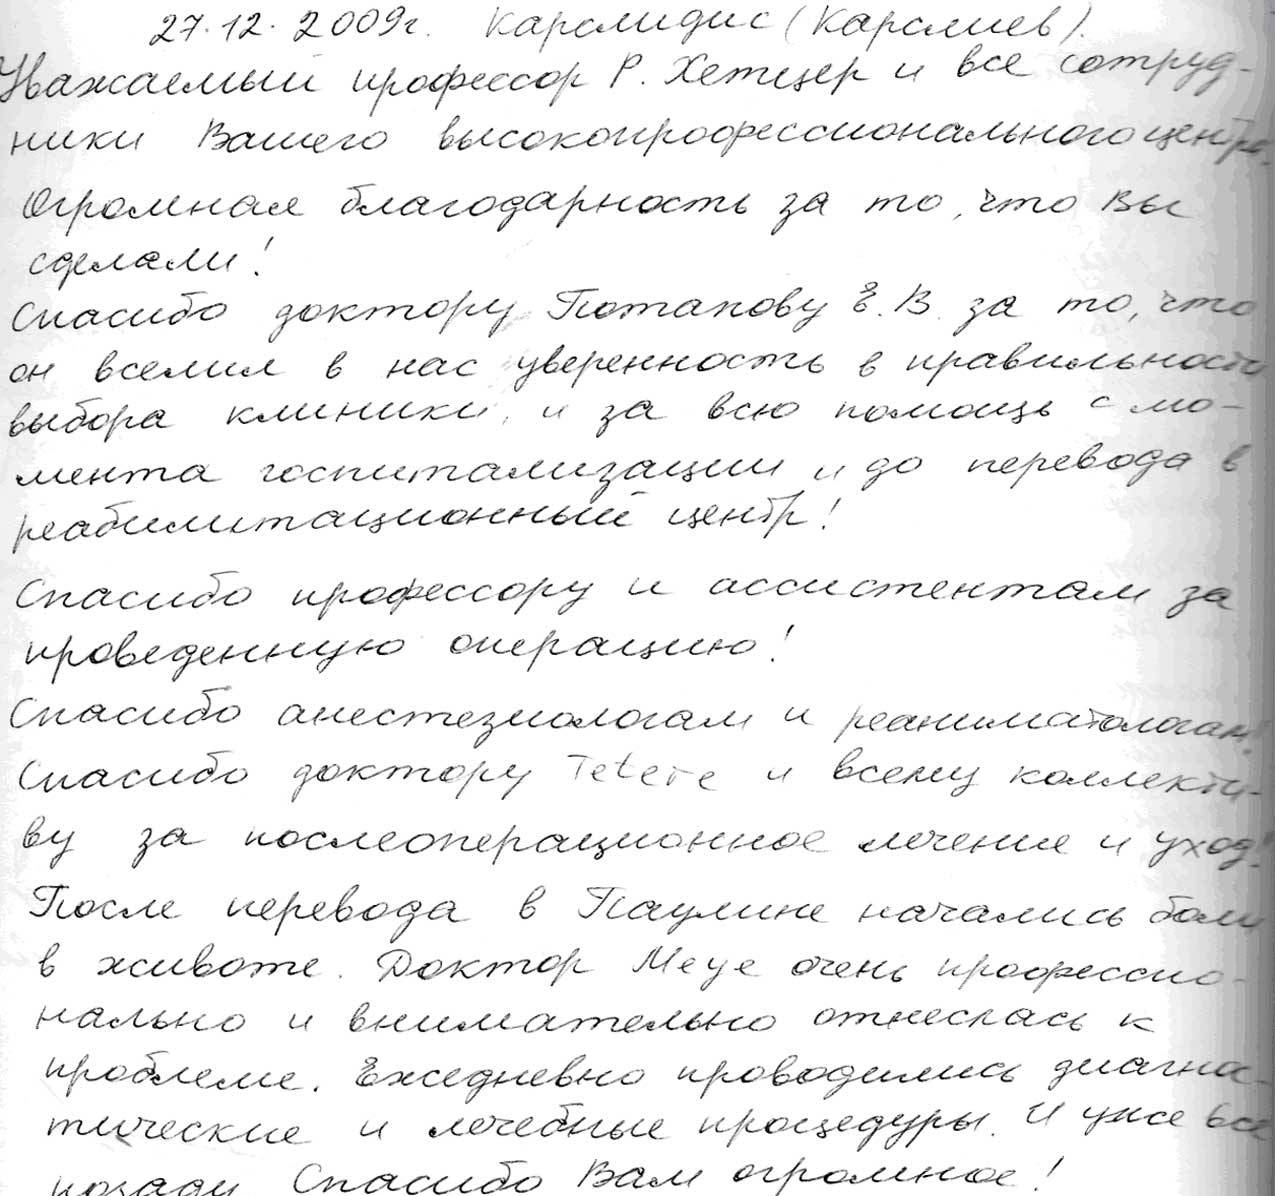 27.12.2009г. Карслидис (Карслиев).
Уважаемый профессор Р. Хетцер и все сотруд-
ники Вашего высокопрофессионального центра.
Огромная благодарность за то, что Вы
сделали!
Спасибо доктору Потапову Е.В. за то, что
он вселил в нас уверенность в правильности
выбора клиники, и за всю помощь с мо-
мента госпитализации и до перевода в
реабилитационный центр!
Спасибо профессору и ассистентам за
проведенную операцию!
Спасибо анестезиологам и реаниматологам!
Спасибо доктору Tetere и всему коллекти-
ву за послеоперационное лечение и уход!
После перевода в Паулине начались боли
в животе. Доктор Меуе очень профессио-
нально и внимательно отнеслась к
проблеме. Ежедневно проводились диагно-
тические и лечебные процедуры. И уже все
позади. Спасибо Вам огромное!